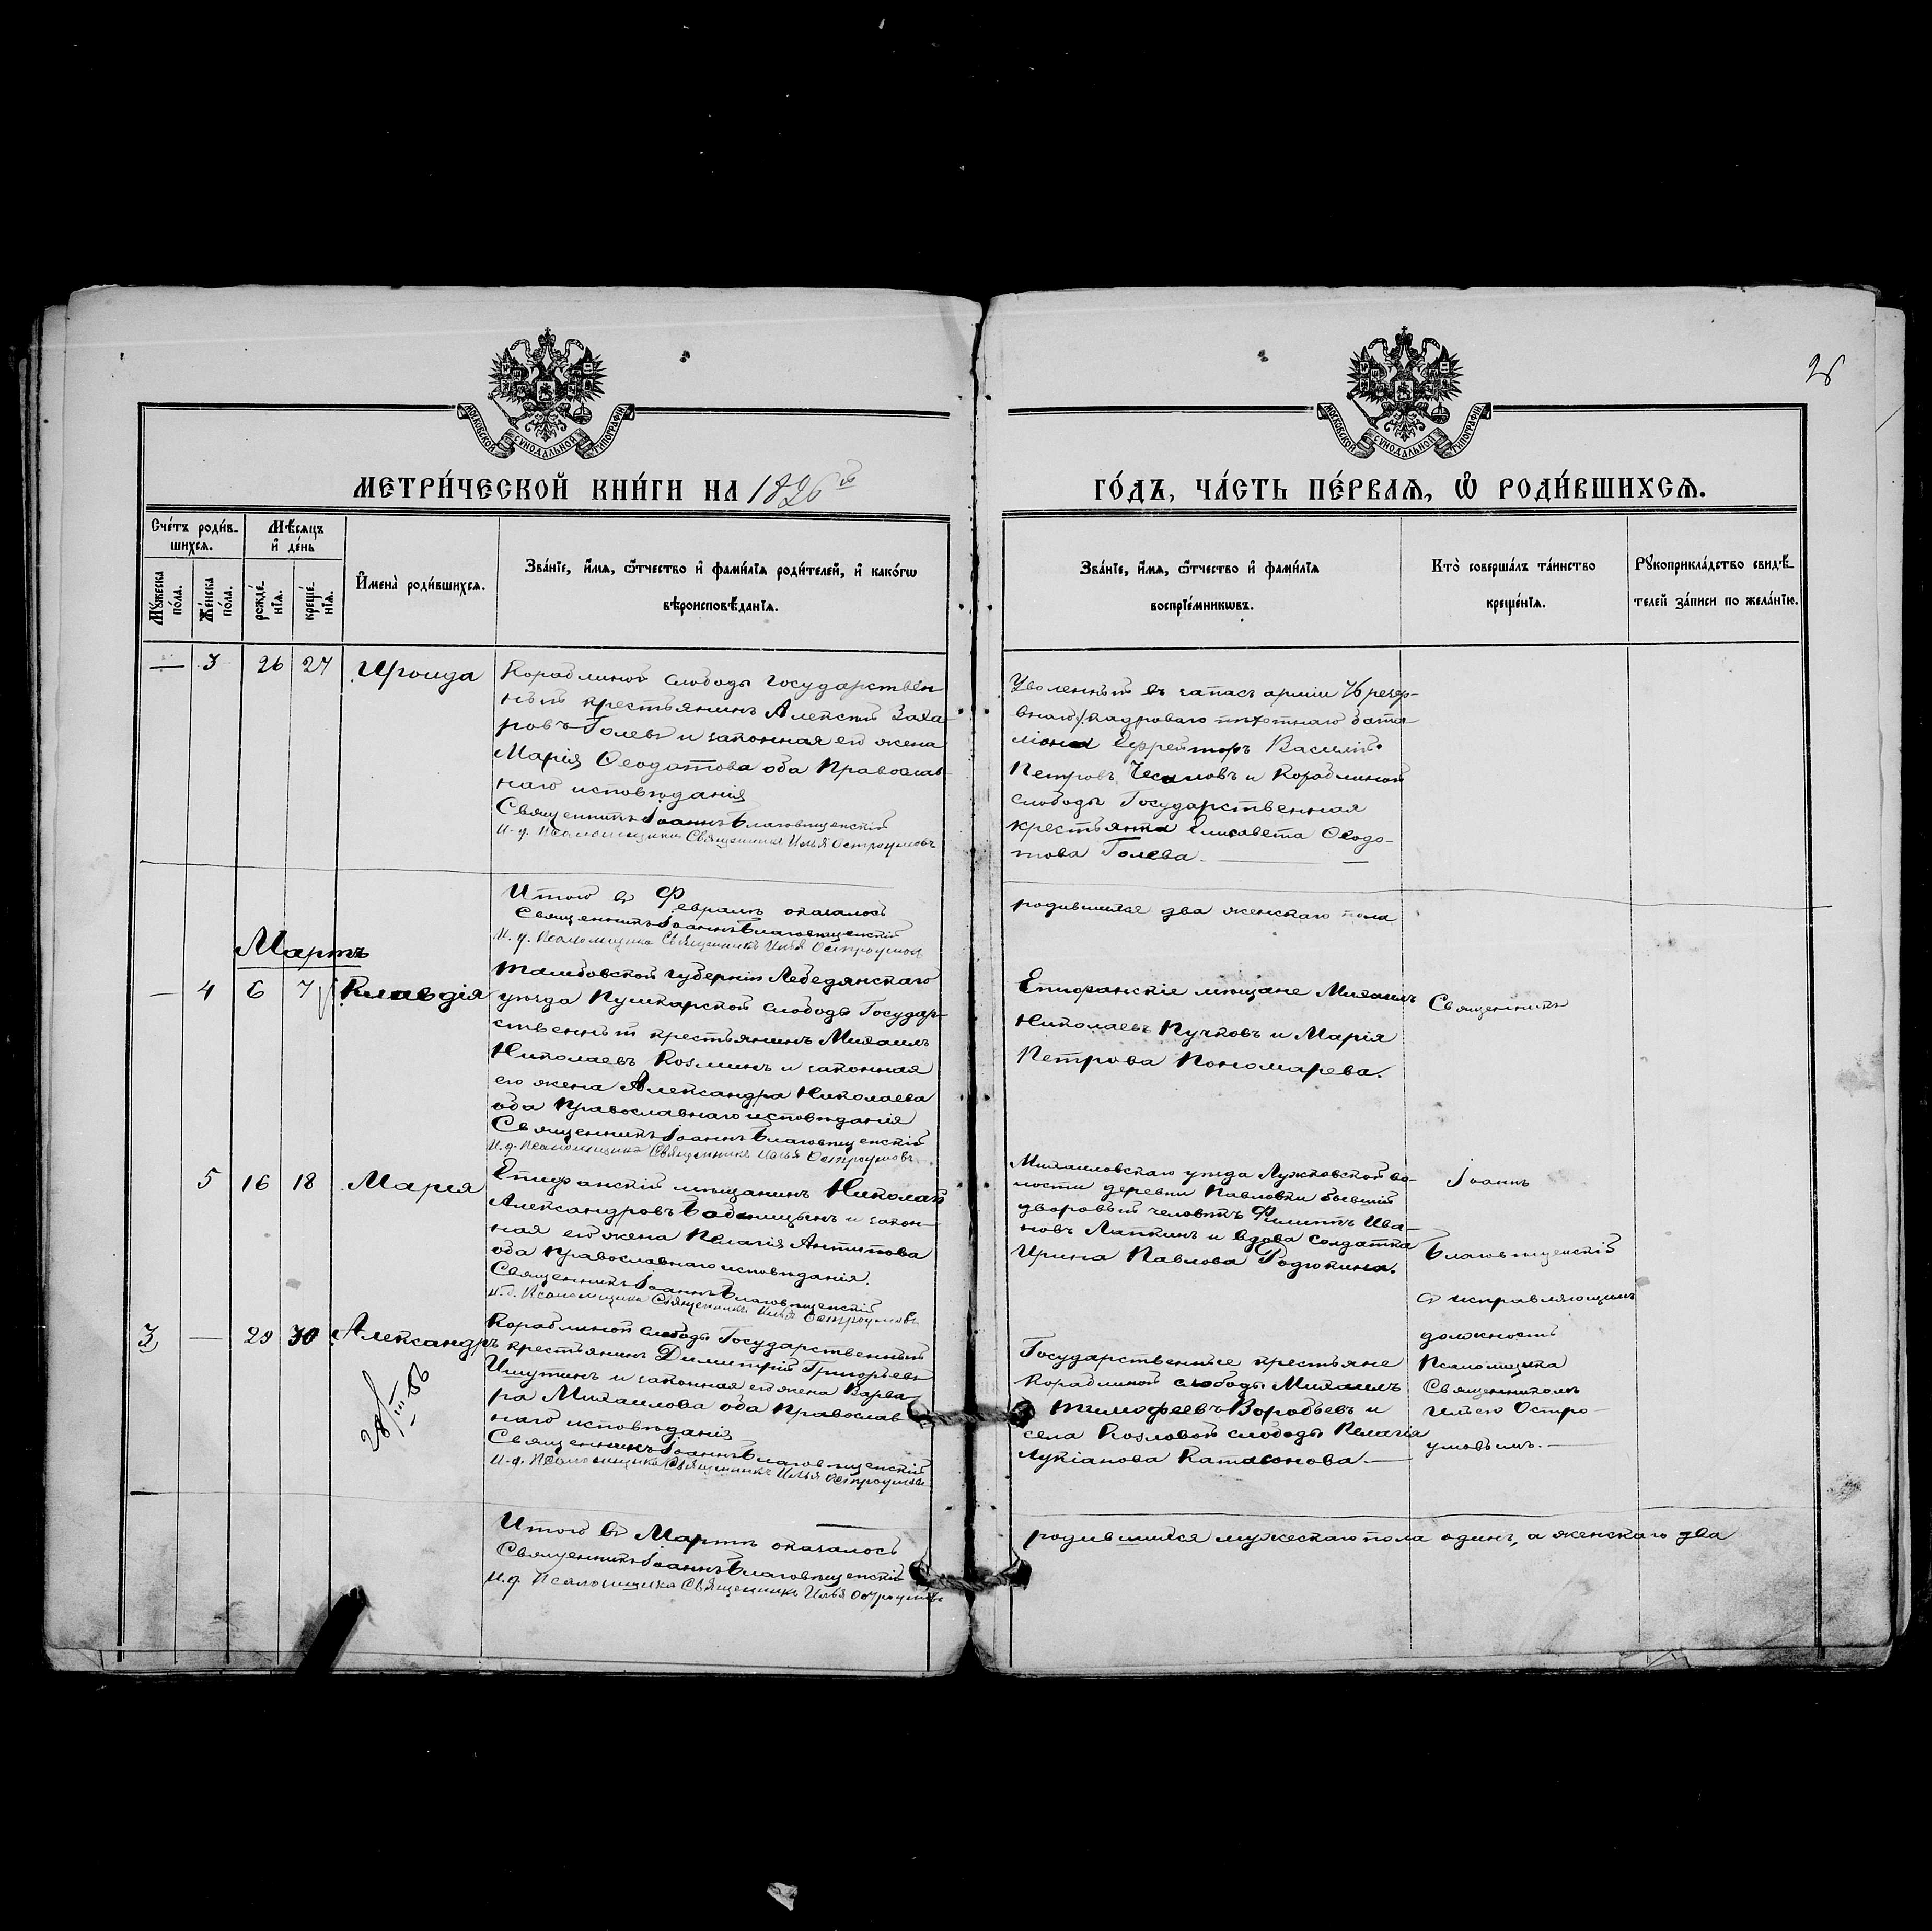 26
МОСКОВСКОЙ СУНОДАЛЬНОЙ ТИПОГРАФІИ
МОСКОВСКОЙ СУНОДАЛЬНОЙ ТИПОГРАФІИ
МЕТРИ́ЧЕСКОЙ КНИ́ГИ НА
ГО́ДЪ, ЧА́СТЬ ПЕ́РВАѦ, Ѽ РОДИ́ВШИХСѦ.
Сче́тъ роди́в-
шихсѧ.
Мѣ́сѧцъ
и҆ де́нь
Мꙋ́жеска
по́ла.
Же́нска
по́ла.
рожде́-
нїѧ.
креще́-
нїѧ.
И҆мена̀ роди́вшихсѧ.
Зва́нїе, и҆́мѧ, ѻ҆́тчество и҆ фами́лїѧ роди́телей, и҆ како́гѡ
вѣроисповѣ́данїѧ.
Зва́нїе, и҆́мѧ, ѻ҆́тчество и҆ фами́лїѧ
воспрїе́мникѡвъ.
Кто̀ соверша́лъ та́инство
креще́нїѧ.
Рꙋкоприкла́дство свидѣ́-
телей за́писи по жела́нїю.
— 3 26 27 Ироида
Кораблиной слободы государствен
ный крестьянинъ Алексій Заха-
ровъ Голевъ и законная его жена
Марія Ѳеодотова оба Православ-
наго исповѣданія
Священникъ Іоаннъ Благовѣщенскій
И. д. Псаломщика Священникъ Илья Остроумовъ
Уволенный въ запасъ арміи 76 резер-
внаго кадроваго пѣхотнаго бата
ліона Ефрейторъ Василій
Петровъ и Кораблиной
слободы Государственная
крестьянка Елисавета Ѳеодо-
това Голева.
Итого въ Февралѣ оказалось
родившихся два женскаго пола
Священникъ Іоаннъ Благовѣщенскій
И. д. Псаломщика Священникъ Илья Остроумовъ
Мартъ
— 4 6 7 Клавдія
Тамбовской губерніи Лебедянскаго
уѣзда Пушкарской слободы Государ-
ственный крестьянинъ Михаилъ
Николаевъ Козминъ и законная
его жена Александра Николаева
оба Православнаго исповѣданія
Священникъ Іоаннъ Благовѣщенскій
И. д. Псаломщика Священникъ Илья Остроумовъ
Епифанскіе мѣщане Михаилъ
Николаевъ Пучковъ и Марія
Петрова Пономарева.
Священникъ
5 16 18 Марія
Епифанскій мѣщанинъ Николай
Александровъ и закон-
ная его жена Пелагія Антипова
оба Православнаго исповѣданія.
Священникъ Іоаннъ Благовѣщенскій
И. д. Псаломщика Священникъ Илья Остроумовъ
Михаиловскаго уѣзда во-
лости деревни Павловки бывшій
дворовый человѣкъ Филиппъ Ива-
новъ Лапкинъ и вдова солдатка
Ирина Павлова Родюкина.
Іоаннъ
Благовѣщенскій
съ исправляющимъ
должность
Псаломщика
Священникомъ
Ильею Остро-
умовымъ.
3 — 29 30 Александръ
Кораблиной слободы Государственный
крестьянинъ Димитрій Григорьевъ
Ишутинъ и законная его жена Варва-
ра Михаилова оба Православ
наго исповѣданія
Священникъ Іоаннъ Благовѣщенскій
И. д. Псаломщика Священникъ Илья Остроумовъ
Государственные крестьяне
Кораблиной слободы Михаилъ
Тимофеевъ Воробьевъ и
села Козловой слободы Пелагія
Лукіанова Катасонова.
Итого въ Мартѣ оказалось
родившихся мужескаго пола одинъ, а женскаго два
Священникъ Іоаннъ Благовѣщенскій
И. д. Псаломщика Священникъ Илья Остроумовъ